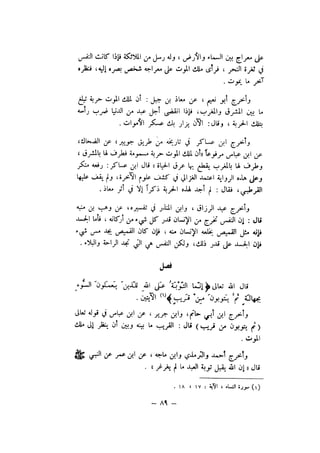 على معراج بين السماء والأرض ، وله رسل من الملائكة فإذا كانت النفس
في ثغرة النحر ، فرأى ملك الموت على معراجه شخص بصره إليه ، فنظره
آخر ما يموت .
وأخرج أبو نعيم ، عن معاذ بن جبل : أن لملك الموت حربة تبلغ
ما بين المشرق والمغرب ، فإذا انقضى أجل عبد من الدنيا ضرب رأسه
بتلك الحربة ، وقال : الآن يزار بك عسكر الأموات .
وأخرج ابن عساكر في تاريخه من طريق جويبر ، عن الضحاك ،
عن ابن عباس مرفوعاً «أن لملك الموت حربة مسمومة فطرف لها بالمشرق ،
وطرف لها بالمغرب يقطع بها عرق الحياة ، قال ابن عساكر : رفعه منكر
وعلى هذه الرواية اعتمد الغزالي في كشف علوم الآخرة ، ولم يقف عليها
القرطبي ، فقال : لم أجد لهذه الحربة ذكراً إلا في أثر معاذ .
وأخرج عبد الرزاق ، وابن المنذر في تفسيره ، عن وهب بن منبه
قال : إن النفس تخرج من الإنسان قدر كل شيء من أركانه ، فأما الجسد
فإنه مثل القميص يخلعه الإنسان منه ، فإن كان القميص يجد مس شيء
فإن الجسد على قدر ذلك ، ولكن النفس هي التي تجد الراحة والبلاء .
فصل
قال الله تعالى ﴿ إنما التوبة على الله للذين يعملون السوء
بجهالة ثم يتوبون من قريب ﴾(١) الآيتين .
وأخرج ابن أبي حاتم ، وابن جرير ، عن ابن عباس في قوله تعالى
( ثم يتوبون من قريب ) قال : القريب ما بينه وبين أن ينظر إلى ملك
الموت .
وأخرج أحمد والترمذي وابن ماجه ، عن ابن عمر عن النبي ﷺ
قال « إن الله يقبل توبة العبد ما لم يغرغر » .
(١) سورة النساء ، الآية ، ١٧ ، ١٨ .
— ٨٩ —